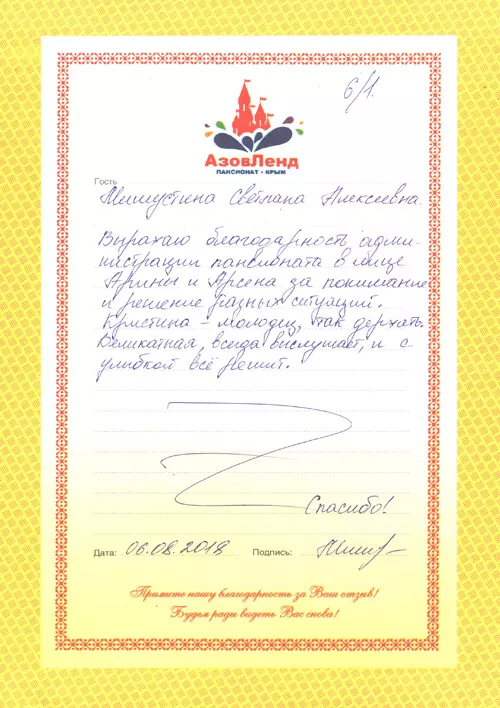 6/1.
АзовЛенд
ПАНСИОНАТ • КРЫМ
Гость
Мишустина Светлана Алексеевна.
Выражаю благодарность адми-
нистрации пансионата в лице
Арины и Арсена за понимание
и решение разных ситуаций.
Кристина – молодец, так держать.
Деликатная, всегда выслушает, и с
улыбкой всё решит.
Спасибо!
Дата: 06.08.2018 Подпись:
Примите нашу благодарность за Ваш отзыв!
Будем рады видеть Вас снова!